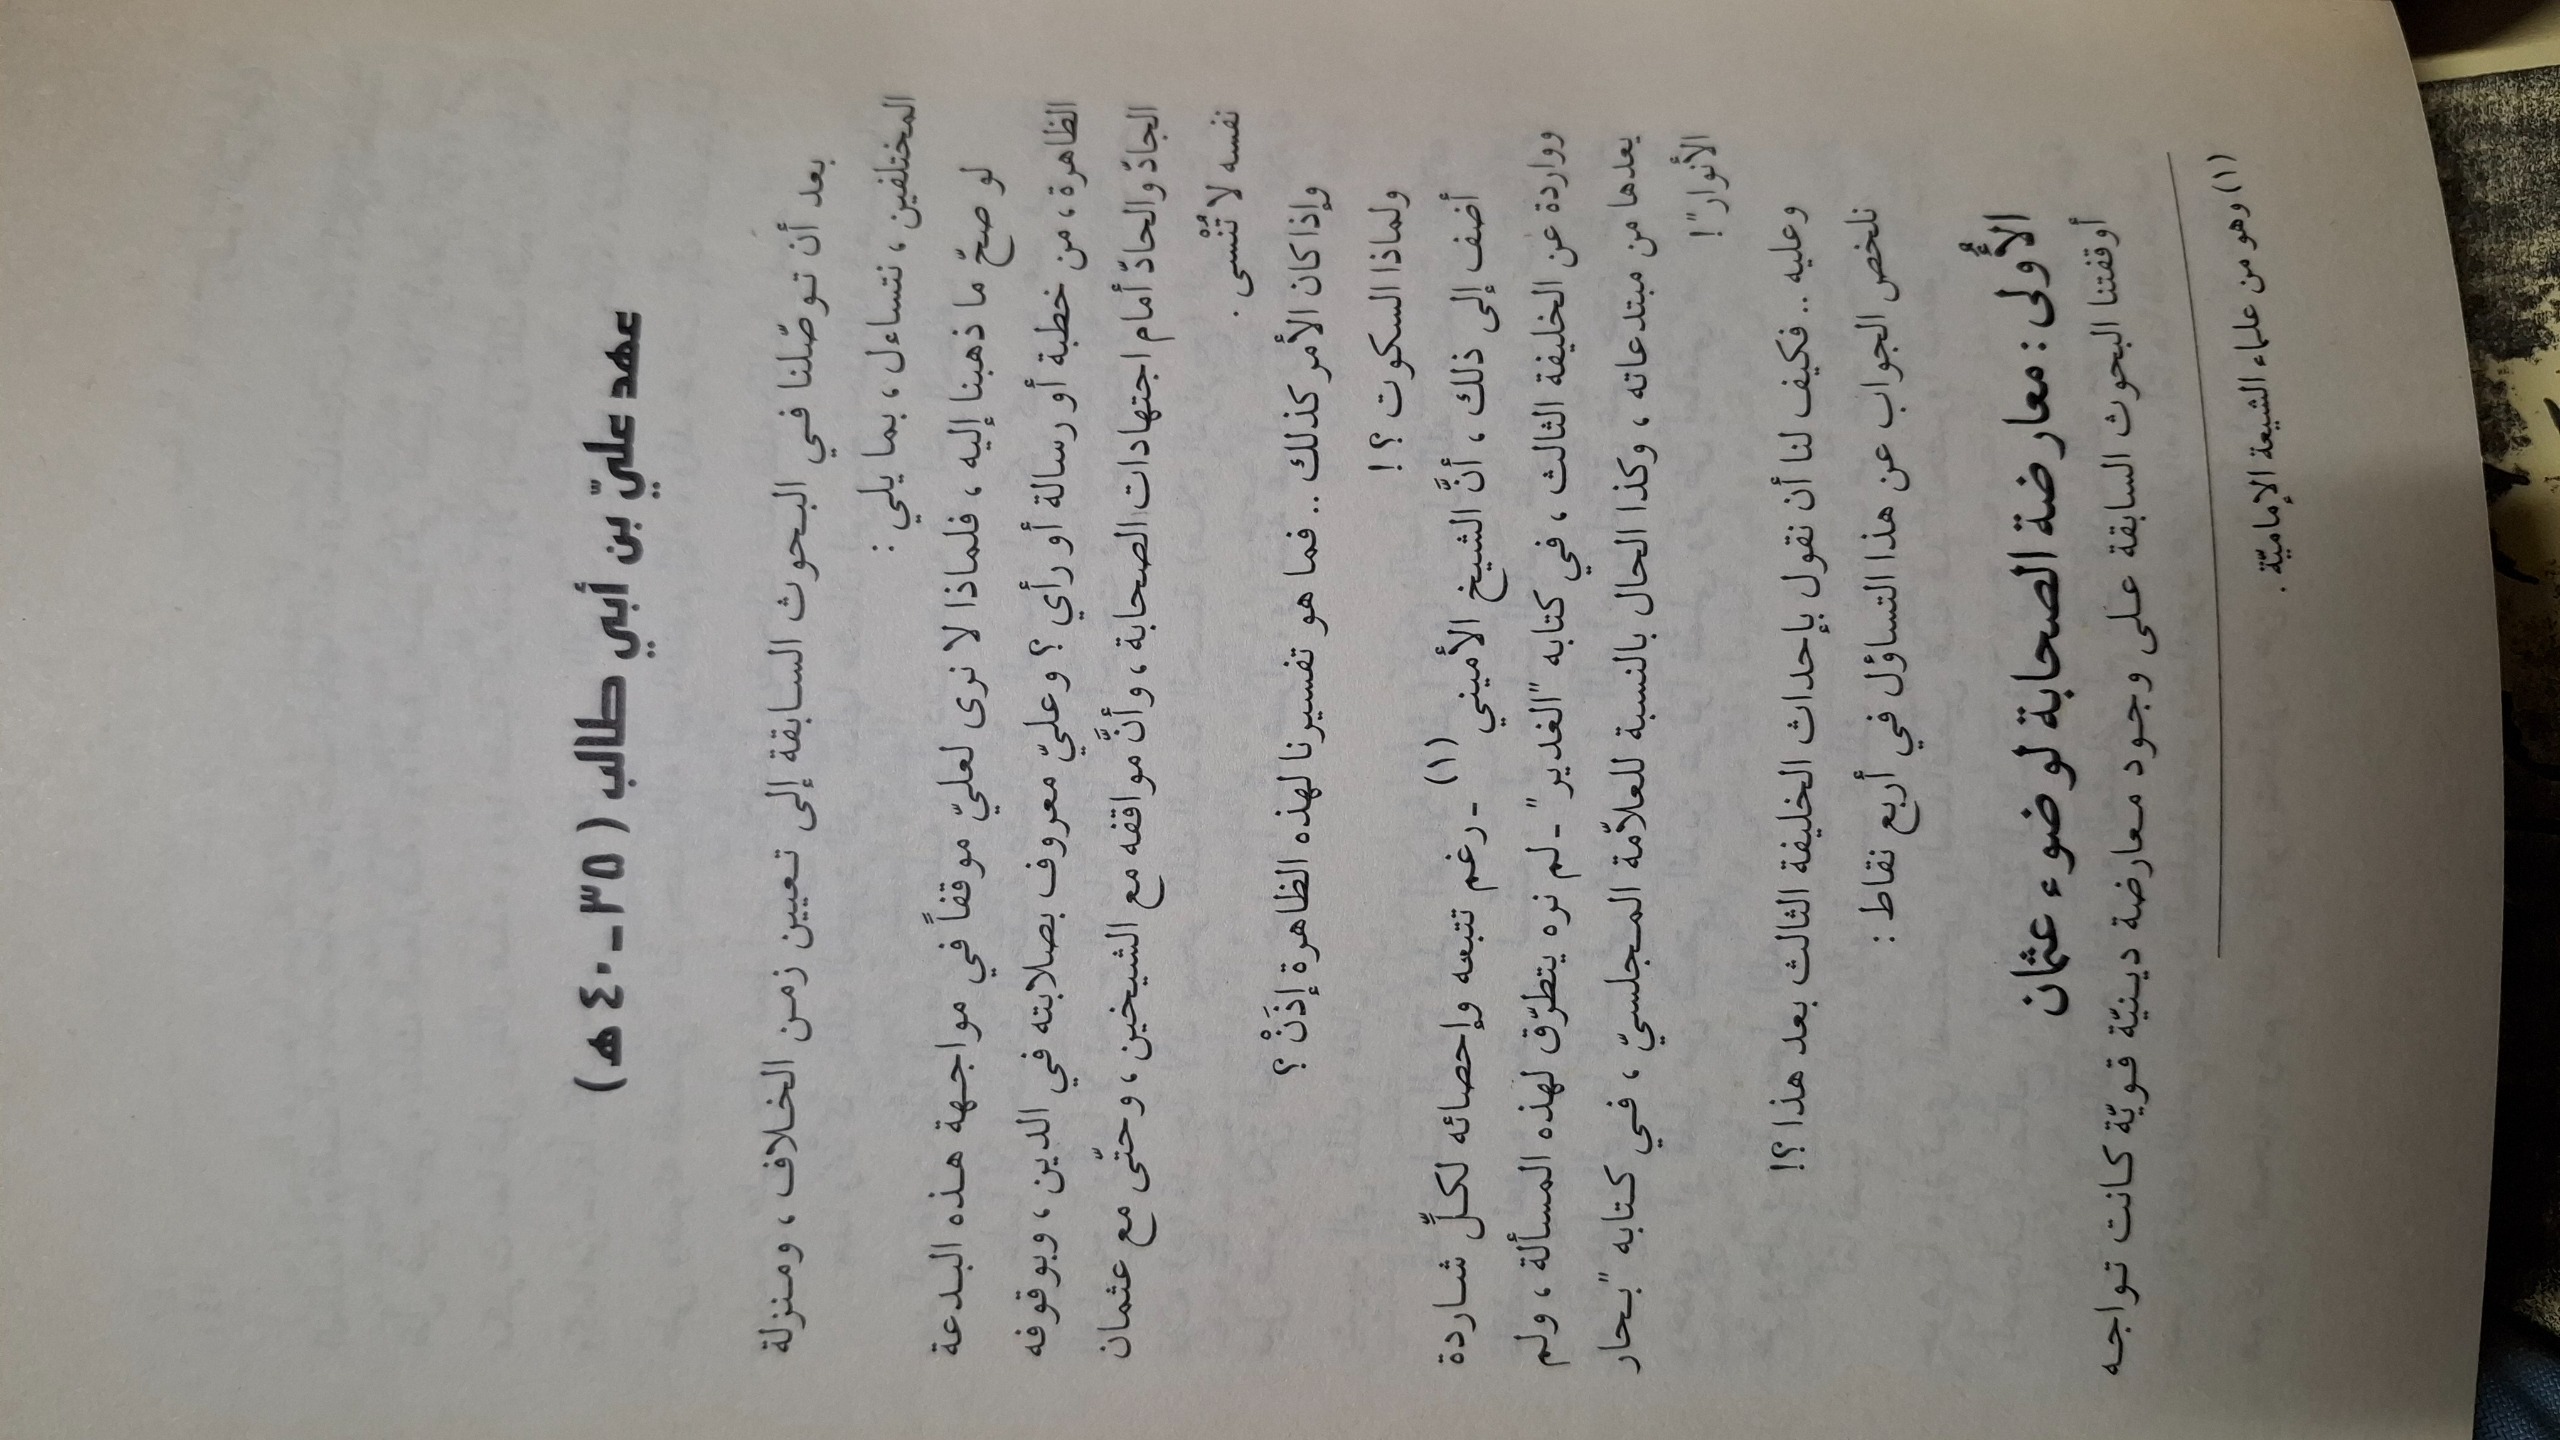 عهد عليّ بن أبي طالب ( ٣٥ ـ ٤٠ هـ )
بعد أن توصّلنا في البحوث السابقة إلى تعيين زمن الخلاف ، ومنزلة
المختلفين ، نتساءل ، بما يلي :
لو صحّ ما ذهبنا إليه ، فلماذا لا نرى لعليّ موقفاً في مواجهة هذه البدعة
الظاهرة ، من خطبة أو رسالة أو رأي ؟ وعليّ معروف بصلابته في الدين ، وبوقوفه
الجادّ والحادّ أمام اجتهادات الصحابة ، وأنَّ مواقفه مع الشيخين ، وحتّى مع عثمان
نفسه لا تُنْسى .
وإذا كان الأمر كذلك .. فما هو تفسيرنا لهذه الظاهرة إذَنْ ؟
ولماذا السكوت ؟ !
أضف إلى ذلك ، أنَّ الشيخ الأميني (١) ـ رغم تتبعه وإحصائه لكلِّ شاردة
وواردة عن الخليفة الثالث ، في كتابه "الغدير" ـ لم نره يتطرّق لهذه المسألة ، ولم
يعدها من مبتدعاته ، وكذا الحال بالنسبة للعلاّمة المجلسيّ ، في كتابه "بحار
الأنوار" !
وعليه .. فكيف لنا أن نقول بإحداث الخليفة الثالث بعد هذا ؟!
نلخص الجواب عن هذا التساؤل في أربع نقاط :
الأُولى : معارضة الصحابة لوضوء عثمان
أوقفتنا البحوث السابقة على وجود معارضة دينيّة قويّة كانت تواجه
(١) وهو من علماء الشيعة الإماميّة .